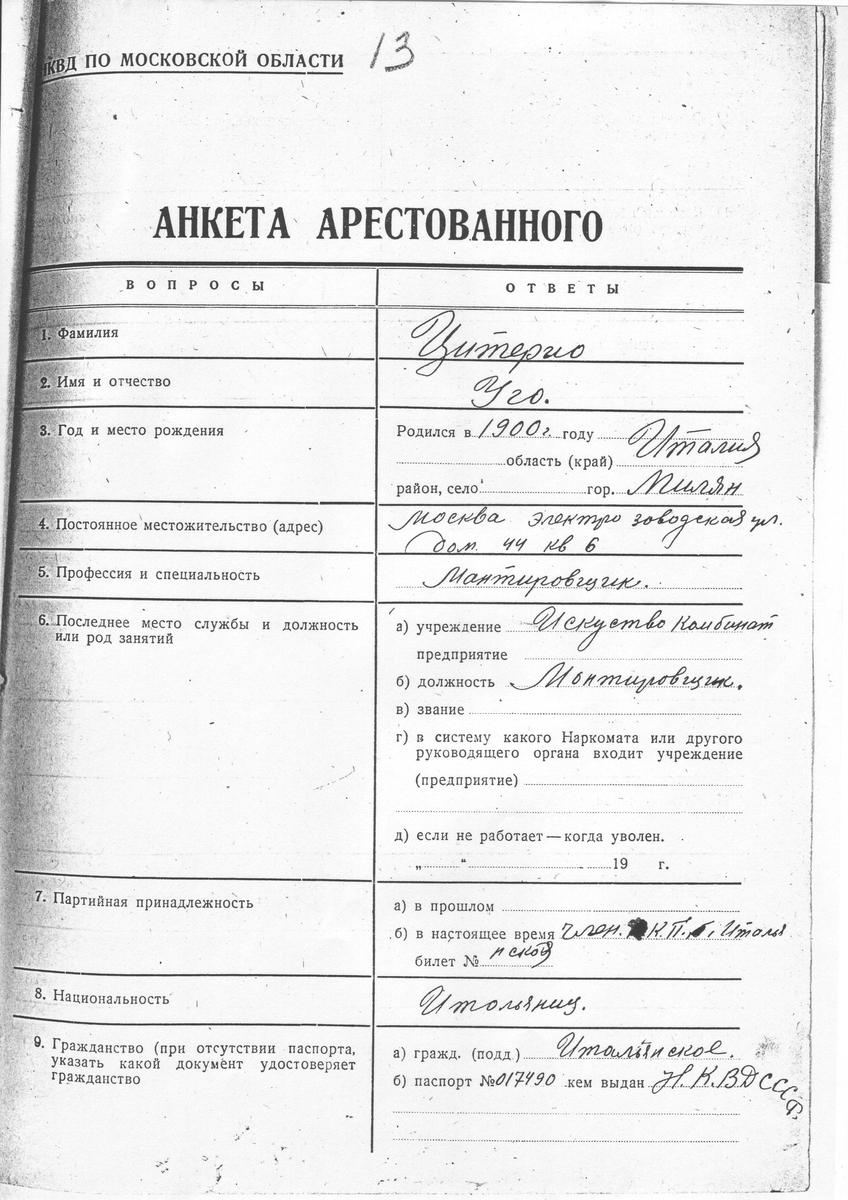 НКВД ПО МОСКОВСКОЙ ОБЛАСТИ
13
АНКЕТА АРЕСТОВАННОГО
ВОПРОСЫ
ОТВЕТЫ
1. Фамилия
Цитерио
2. Имя и отчество
Уго.
3. Год и место рождения
Родился в 1900г. году Италия
область (край)
район, село гор. Милян
4. Постоянное местожительство (адрес)
Москва электро зоводская ул.
дом 44 кв 6
5. Профессия и специальность
Мантировщик.
6. Последнее место службы и должность
или род занятий
а) учреждение Искуство Комбинат
предприятие
б) должность Монтировщик.
в) звание
г) в систему какого Наркомата или другого
руководящего органа входит учреждение
(предприятие)
д) если не работает — когда уволен.
„ “ 19 г.
7. Партийная принадлежность
а) в прошлом
б) в настоящее время член. К.П. Италья
нской
билет №
8. Национальность
Итольяниц.
9. Гражданство (при отсутствии паспорта,
указать какой документ удостоверяет
гражданство
а) гражд. (подд.) Итальянское.
б) паспорт № 017490 кем выдан Н.К.ВД СССР.